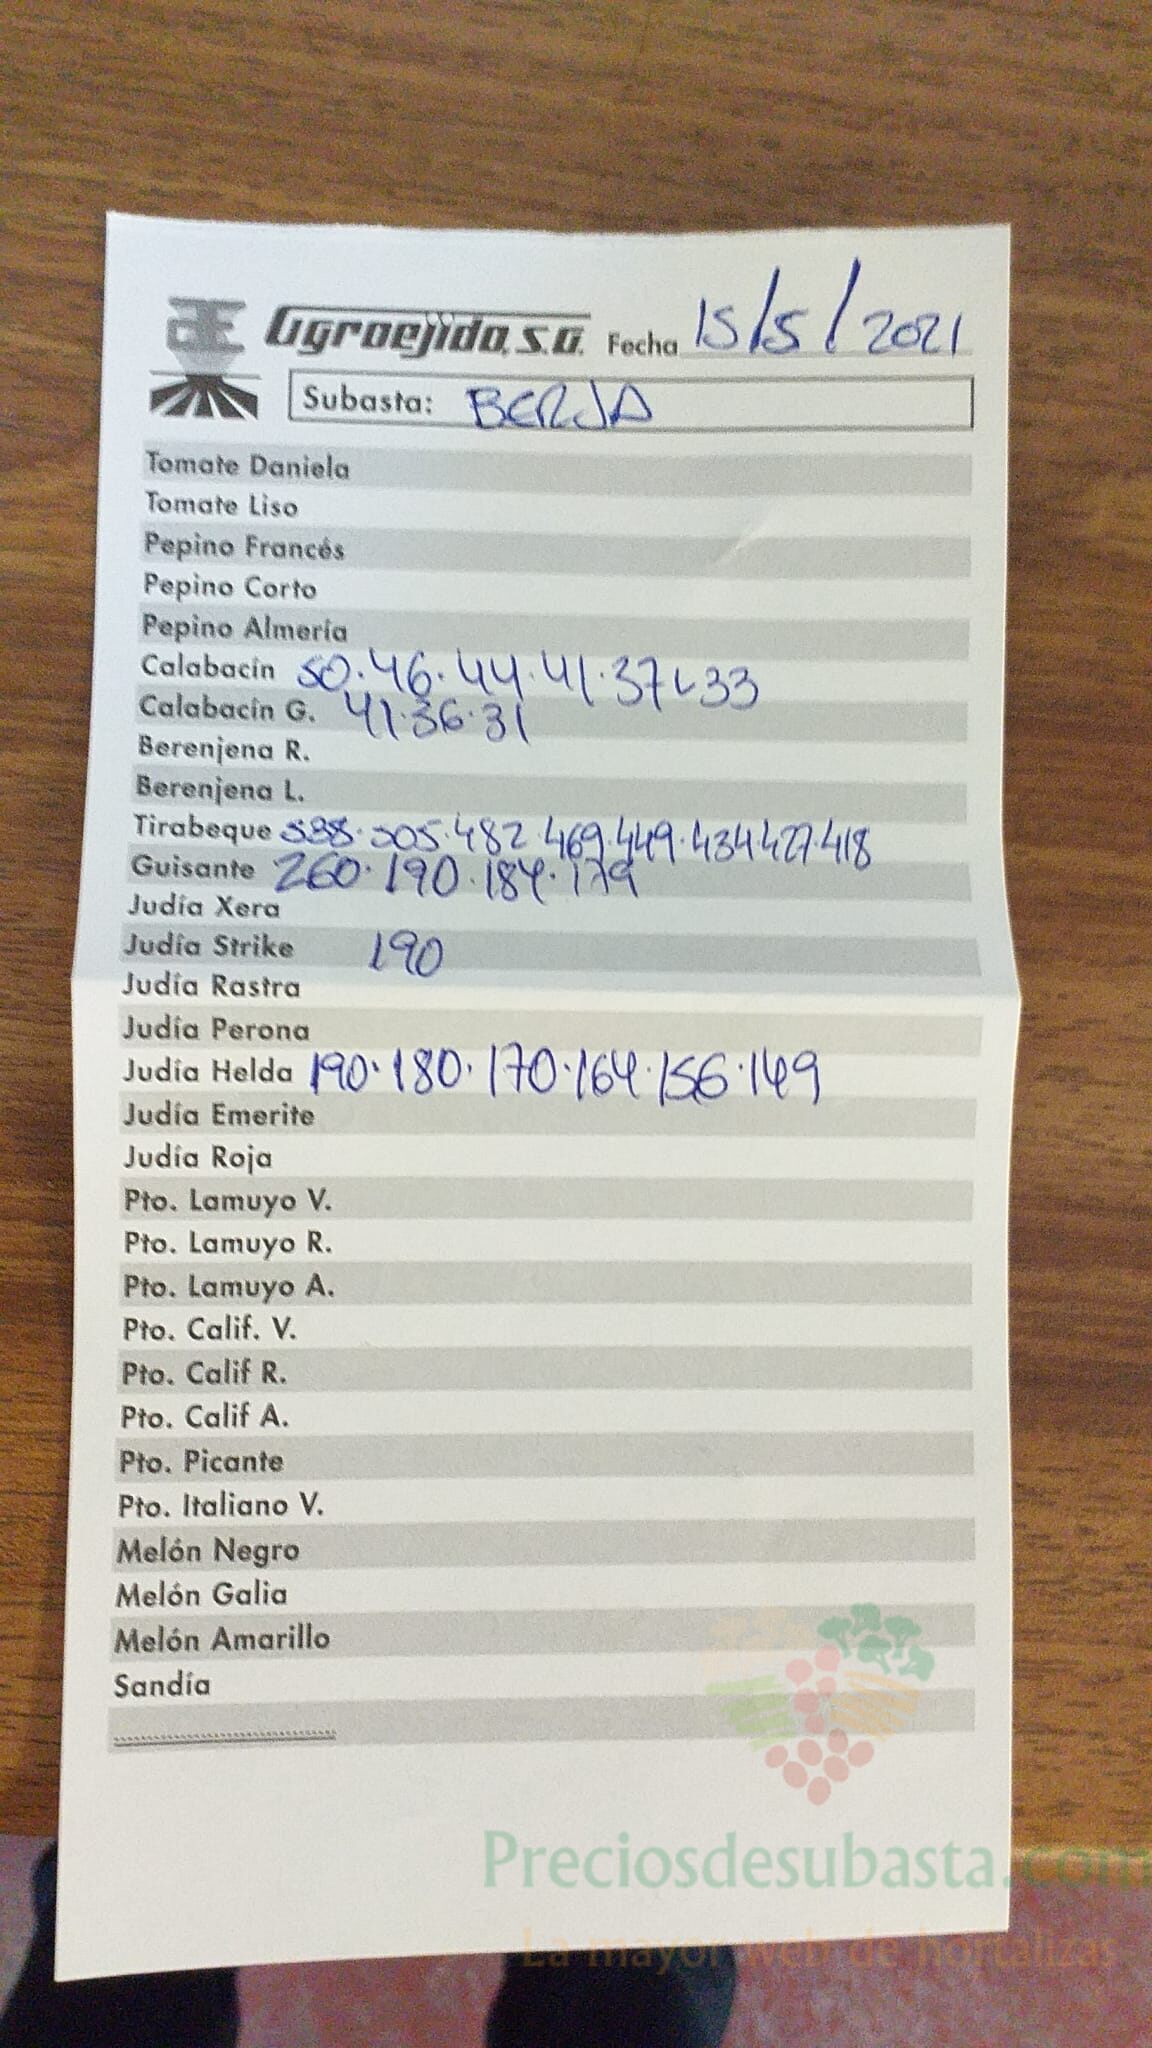 Agroejido, S.A. Fecha 15/5/2021
Subasta: BERJA
Tomate Daniela
Tomate Liso
Pepino Francés
Pepino Corto
Pepino Almería
Calabacín 50.46.44.41.37-33
Calabacín G. 41.36.31
Berenjena R.
Berenjena L.
Tirabeque 538.505.482.469.449.434.427.418
Guisante 260.190.184.179
Judía Xera
Judía Strike 190
Judía Rastra
Judía Perona
Judía Helda 190.180.170.164.156.149
Judía Emerite
Judía Roja
Pto. Lamuyo V.
Pto. Lamuyo R.
Pto. Lamuyo A.
Pto. Calif. V.
Pto. Calif R.
Pto. Calif A.
Pto. Picante
Pto. Italiano V.
Melón Negro
Melón Galia
Melón Amarillo
Sandía
Preciosdesubasta.com
La mayor web de hortalizas